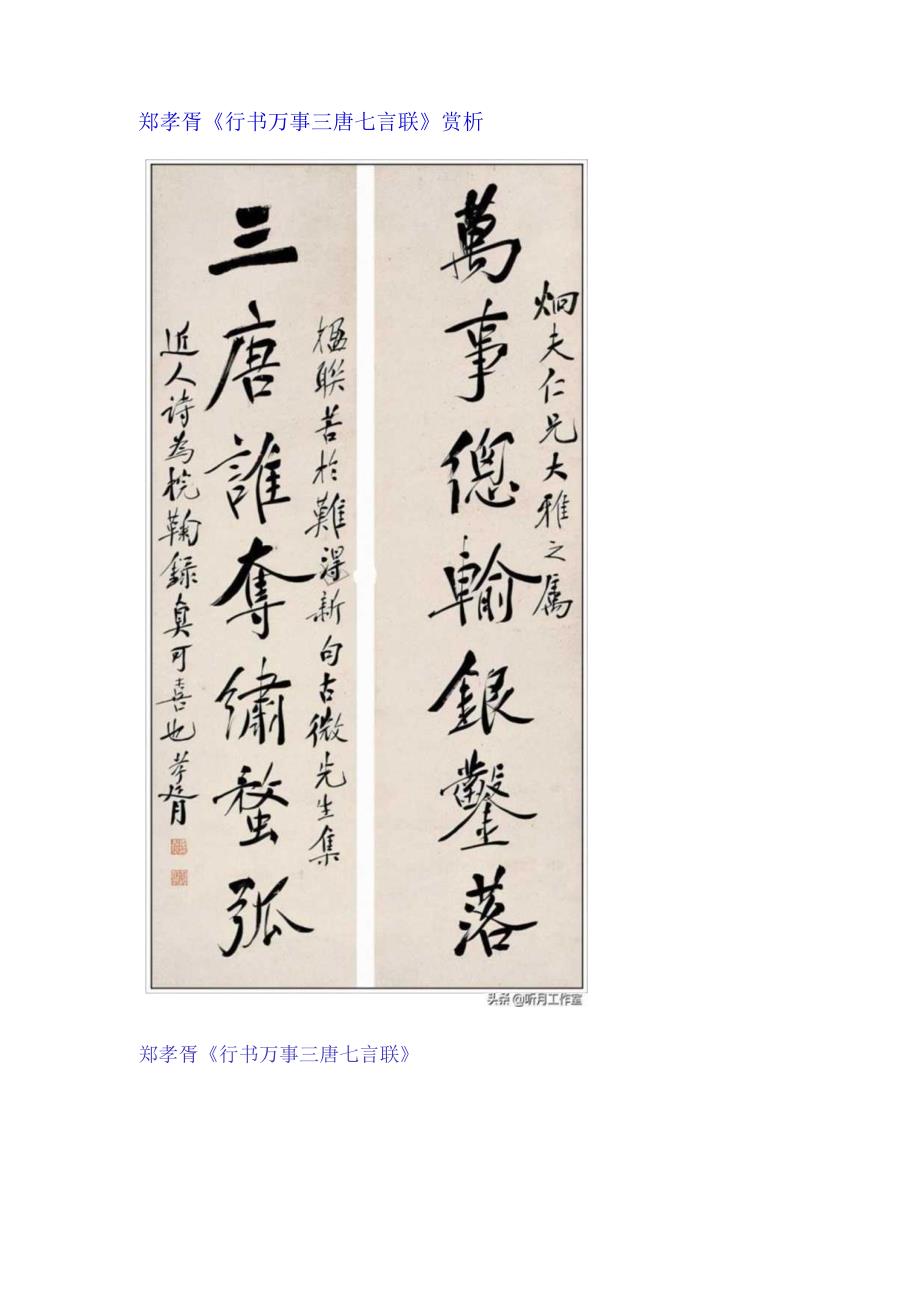 郑孝胥《行书万事三唐七言联》赏析
炯夫仁兄大雅之属
萬事總輸銀鑿落
楹聯苦於難得新句古微先生集
三唐誰奪繡蝥弧
近人诗為梡鞠録真可喜也孝胥
头条@听月工作室
郑孝胥《行书万事三唐七言联》